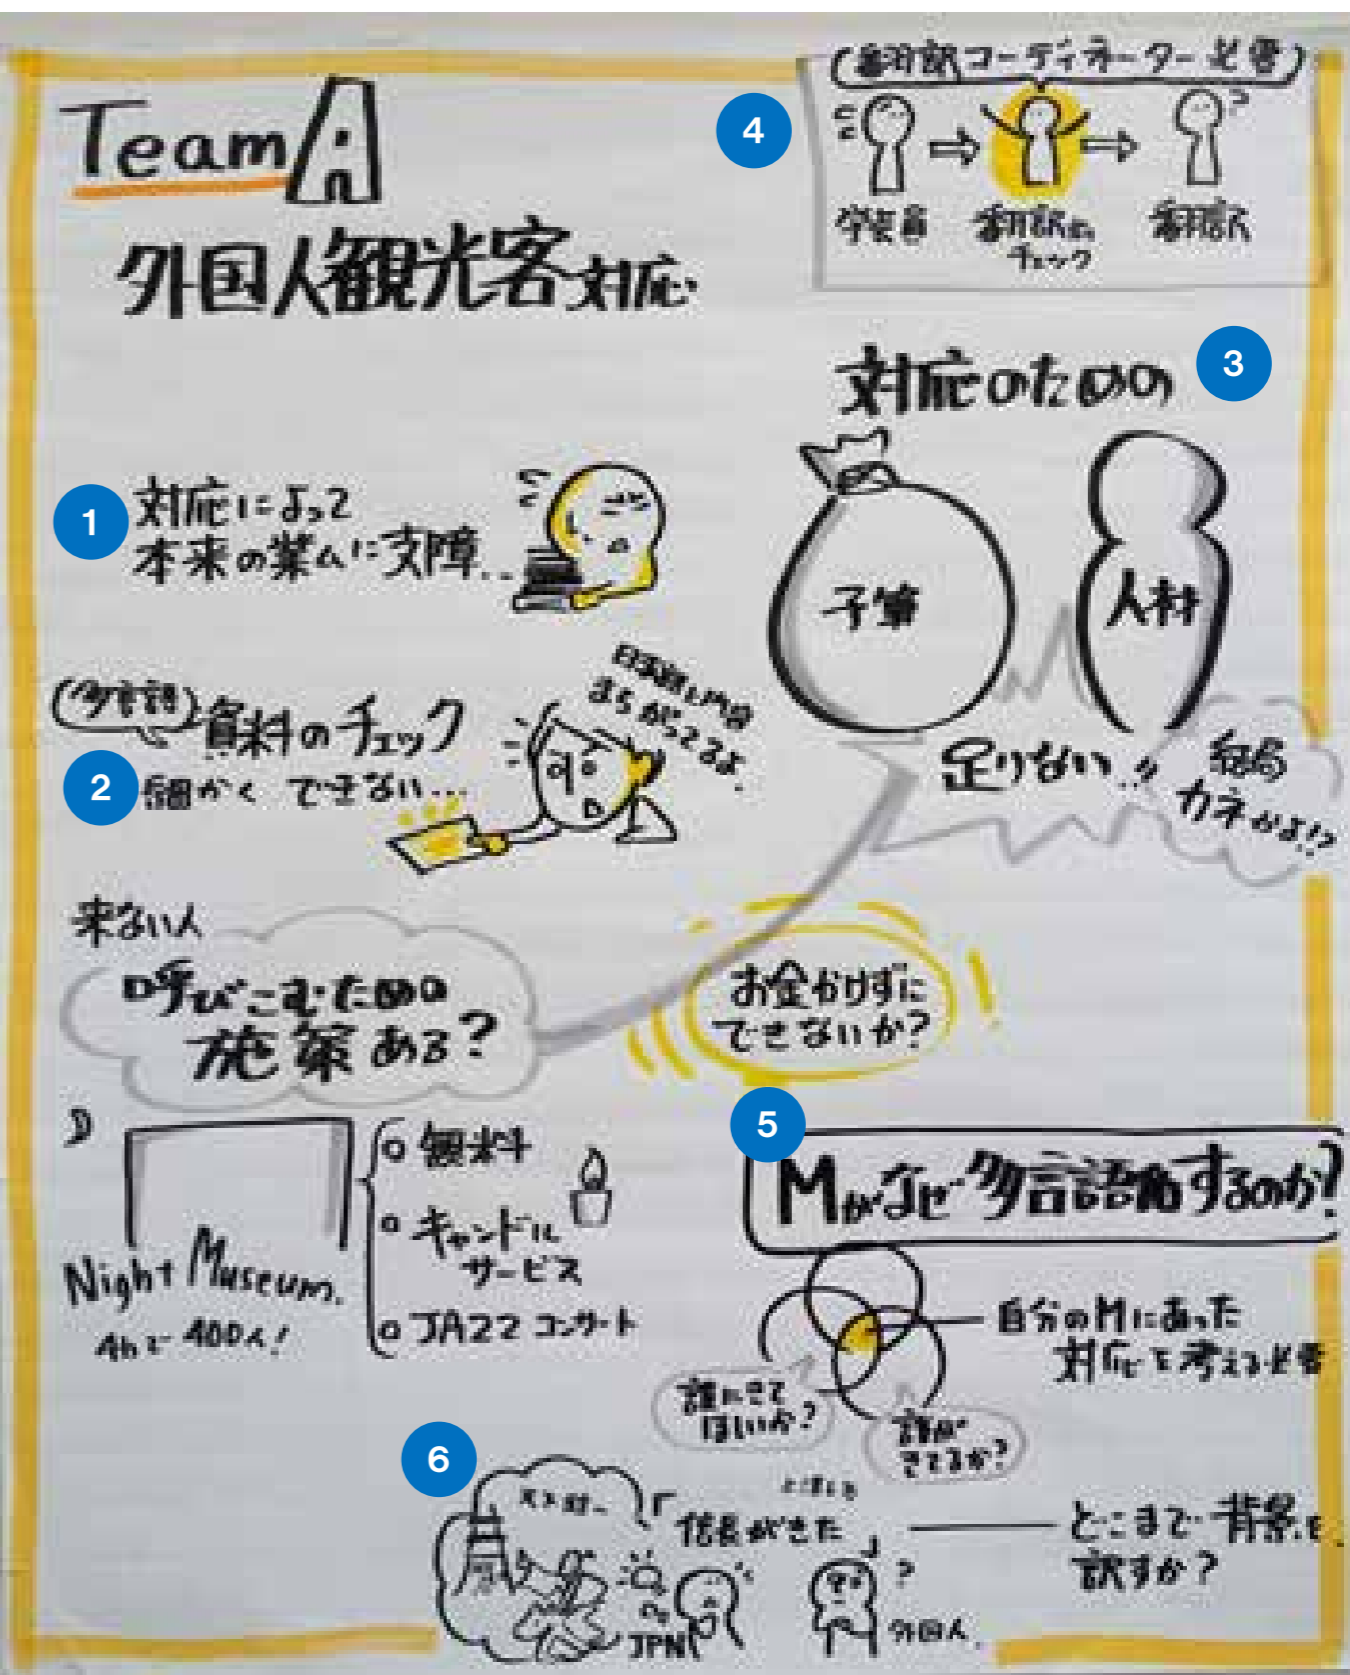 Team A
外国人観光客対応
4
(翻訳コーディネーター必要)
学芸員
翻訳の
チェック
翻訳
?
対応のための
3
予算
人材
足りない!!
結局
カネかよ!?
1
対応によって
本来の業ムに支障...
(多言語)
資料のチェック
2
細かくできない...
まちがってるよ
来ない人
呼びこむための
施策ある?
お金かけずに
できないか?
Night Museum.
4hで400人!
○観米斗
○キャンドル
サービス
○JAZZコンサート
5
Mがなぜ多言語化するのか?
自分のMにあった
対応を考える必要
誰にきて
ほしいか?
誰が
きてるか?
6
「信長がきた」
JPN
?
外国人
どこまで背景を
訳すか?